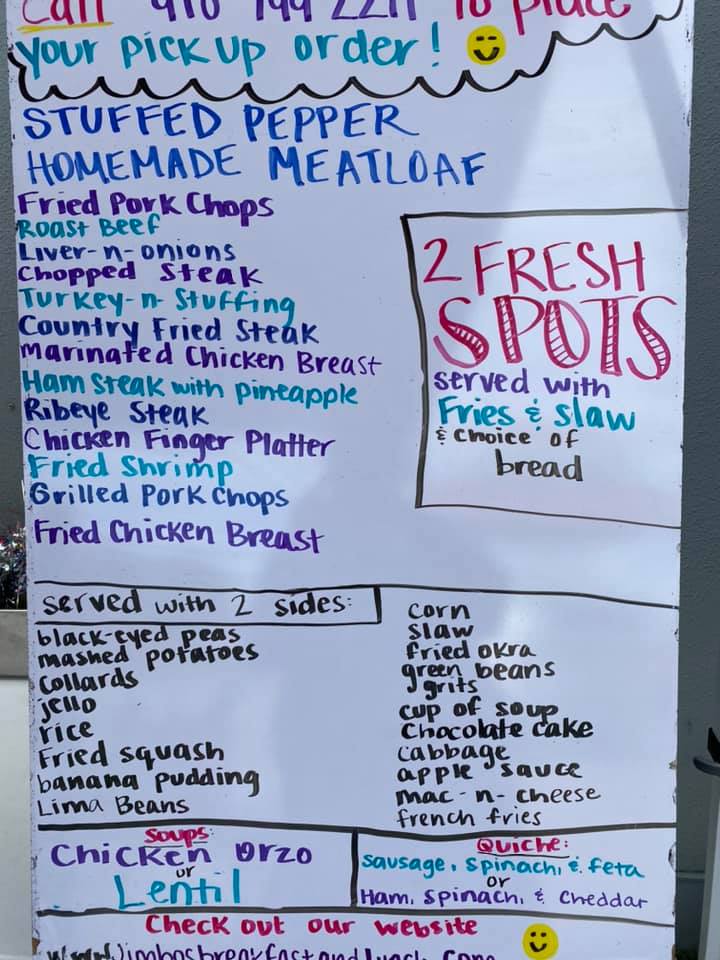 Call 910 799 2211 to place
your pick up order!
STUFFED PEPPER
HOMEMADE MEATLOAF
Fried Pork Chops
Roast Beef
Liver-n-onions
Chopped Steak
Turkey-n-Stuffing
Country Fried Steak
Marinated Chicken Breast
Ham Steak with pineapple
Ribeye Steak
Chicken Finger Platter
Fried Shrimp
Grilled Pork Chops
Fried Chicken Breast
2 FRESH
SPOTS
served with
Fries & slaw
& choice of
bread
served with 2 sides:
black-eyed peas
mashed potatoes
collards
jello
rice
Fried squash
banana pudding
Lima Beans
corn
slaw
fried okra
green beans
grits
cup of soup
Chocolate cake
cabbage
apple sauce
mac-n-cheese
french fries
Soups:
Chicken Orzo
or
Lentil
Quiche:
Sausage, spinach, & feta
or
Ham, spinach, & cheddar
Check out our website
www.jimbosbreakfastandlunch.com